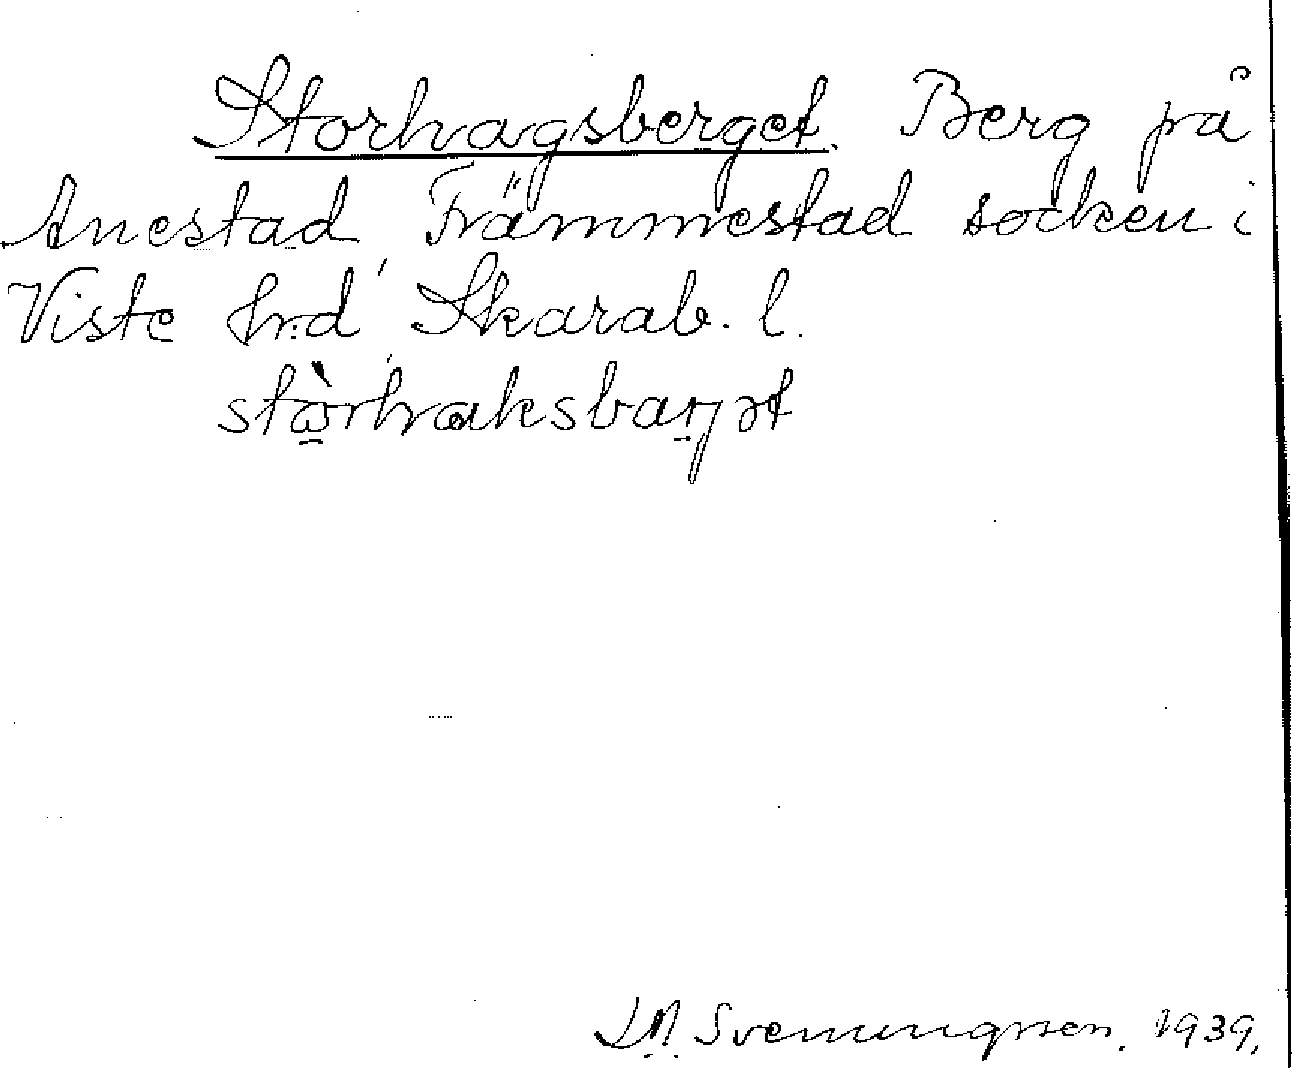 Storhagsberget. Berg på
Anestad, Främmestad socken i
Viste hrd, Skarab. l.
stòrhaksbarjət
LN. Svenungsson. 1939.